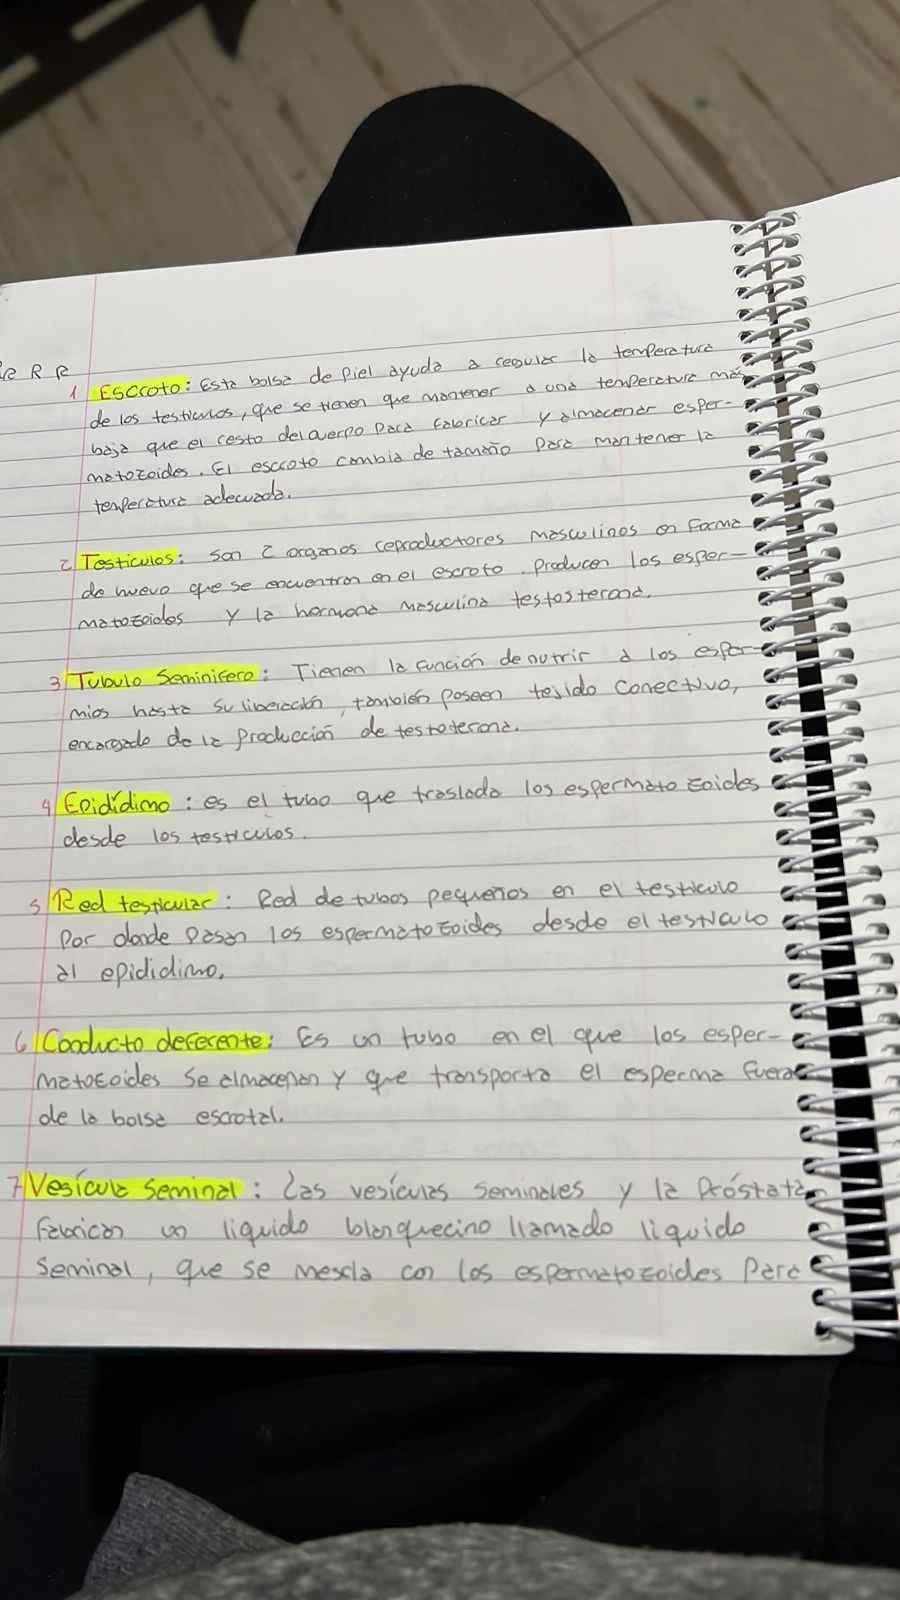 R R R
1 Escroto: Esta bolsa de piel ayuda a regular la temperatura
de los testiculos, que se tienen que mantener a una temperatura más
baja que el resto del cuerpo para fabricar y almacenar esper-
matozoides. El escroto cambia de tamaño para mantener la
temperatura adecuada.
2 Testiculos: Son 2 organos reproductores masculinos en forma
de huevo que se encuentran en el escroto. Producen los esper-
matozoides y la hormona masculina testosterona.
3 Tubulo Seminifero: Tienen la función de nutrir a los esper-
mios hasta su liberación, también poseen tejido conectivo,
encargado de la producción de testoterona.
4 Epidídimo: es el tubo que traslada los espermatozoides
desde los testiculos.
5 Red testicular: Red de tubos pequeños en el testiculo
por donde pasan los espermatozoides desde el testiculo
al epididimo.
6 Conducto deferente: Es un tubo en el que los esper-
matozoides se almacenan y que transporta el esperma fuera
de la bolsa escrotal.
7 Vesícula seminal: Las vesículas seminales y la próstata
fabrican un liquido blanquecino llamado liquido
seminal, que se mezcla con los espermatozoides para